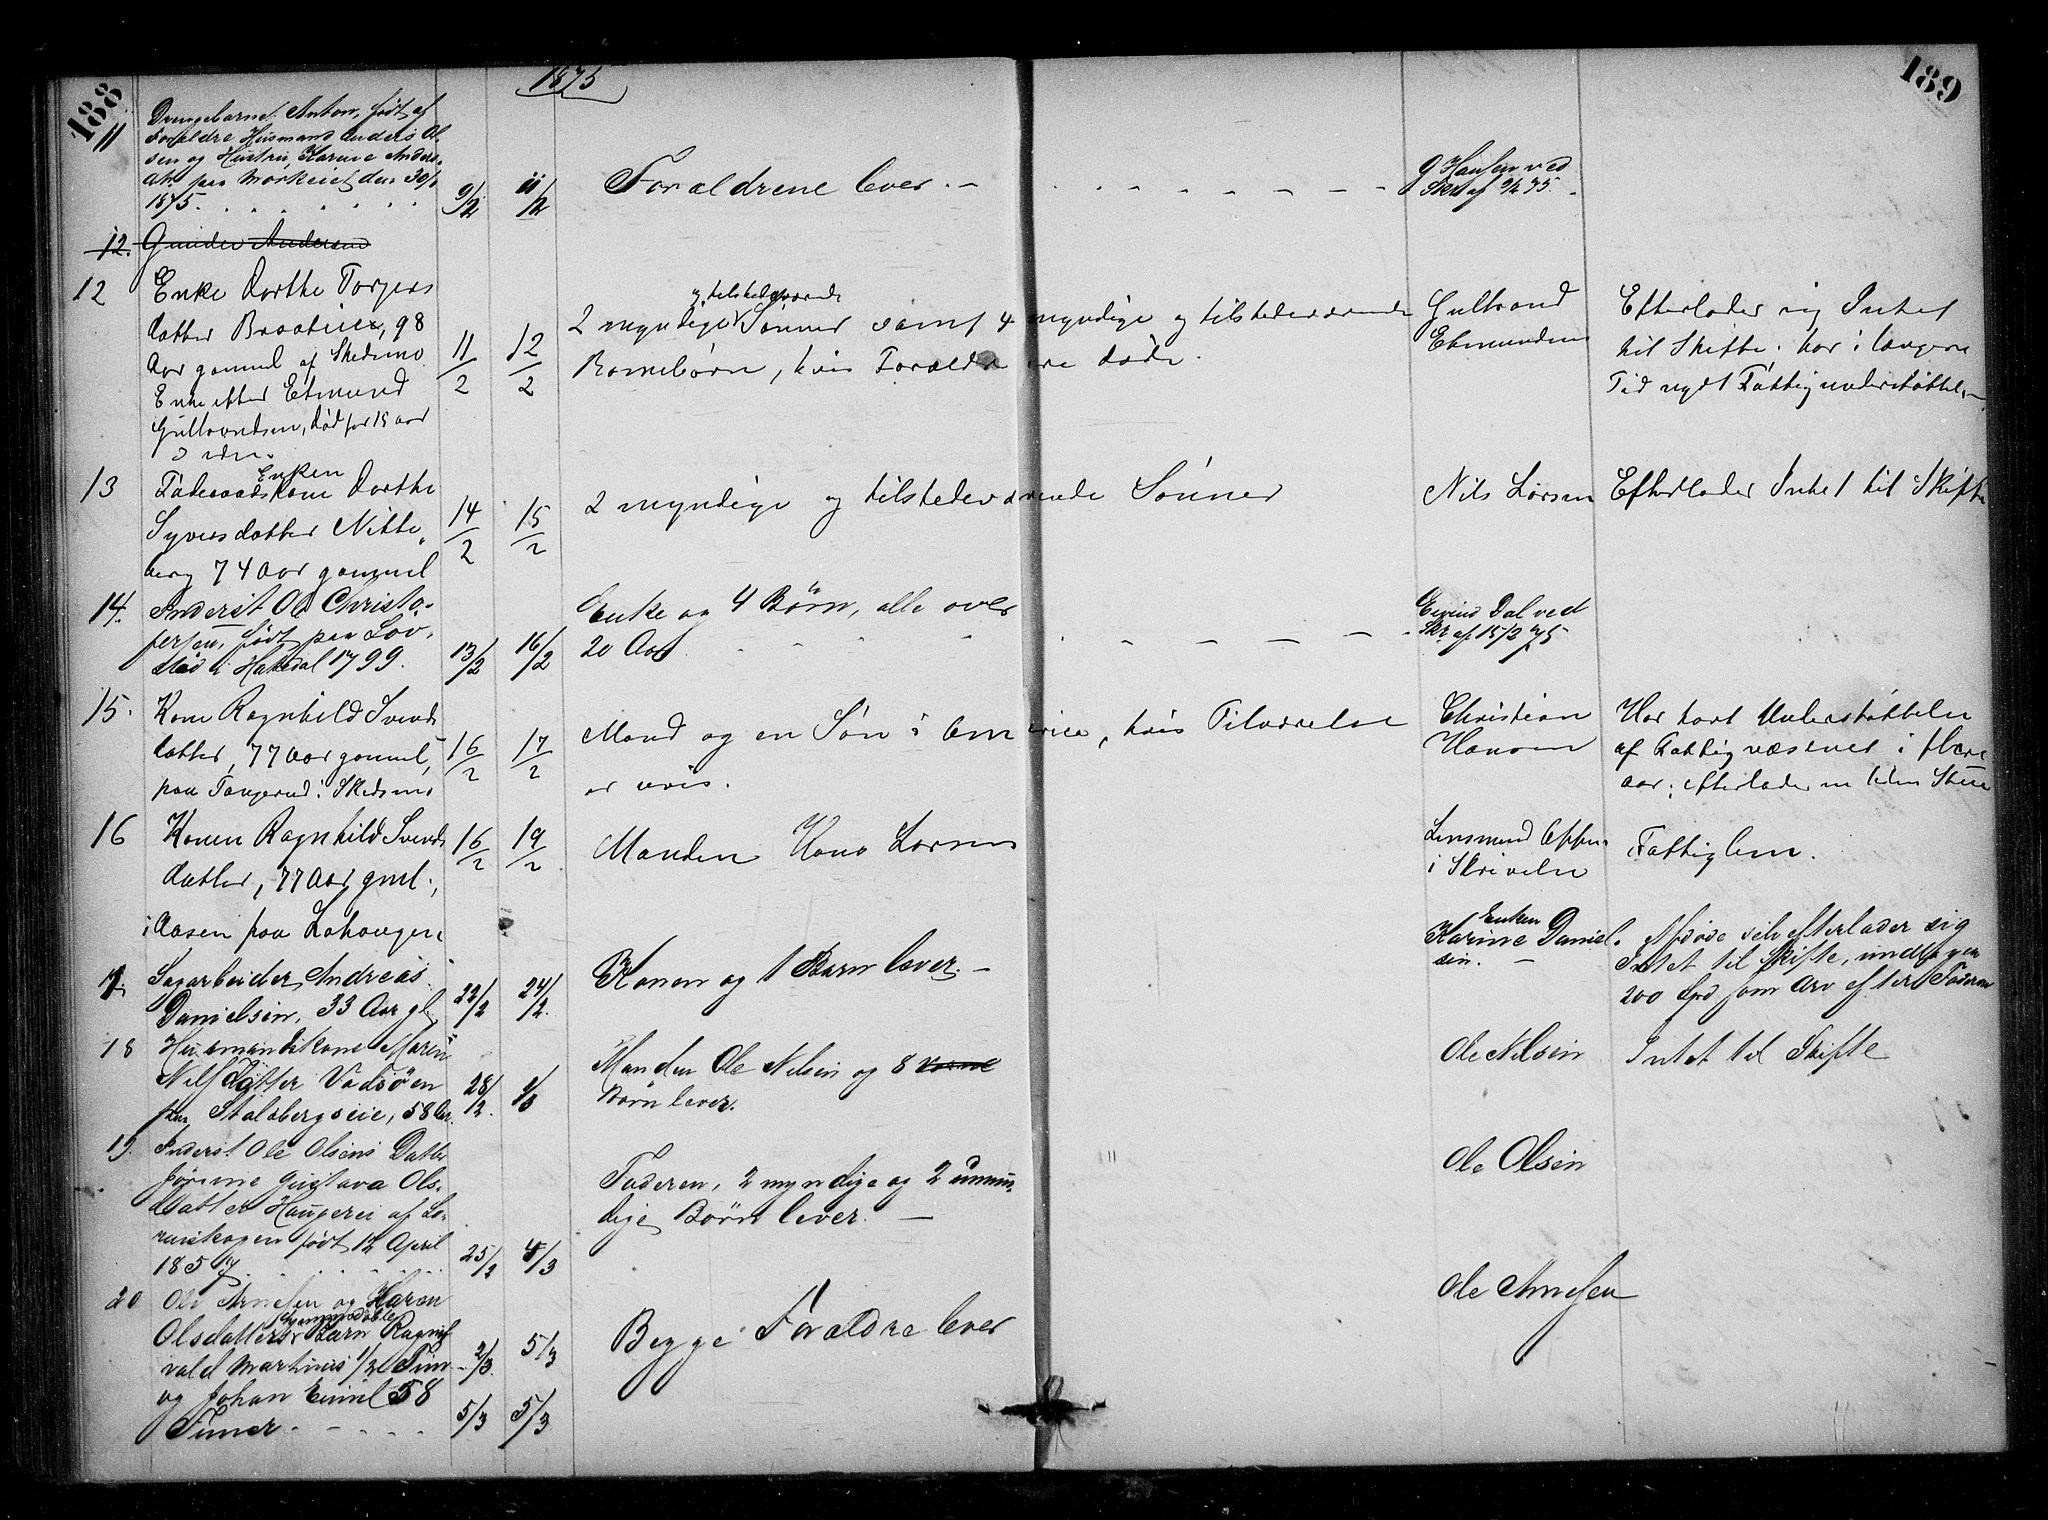 188
1875
189
11
Drengebarnet Anton, født af
Forældre Husmand Anders Ol-
sen og Hustru Karine Anders-
dtr. paa Mørkeiet den 30/1
1875.
9/2
11/2
Forældrene lever. -
G Hansen ved
Skr. af 9/2 75.
12. Gunder Andersen
12
Enke Dorthe Torgers
datter Braateie, 98
Aar gammel af Skedsmo
Enke efter Etmund
Gulbrandsen, død for 19 aar
siden.
11/2
12/2
og tilstedeværende
2 myndige Sønner samt 4 myndige og tilstedeværende
Børnebørn, hvis Forældre ere døde.
Gulbrand
Etmundsen
Efterlader sig Intet
til Skifte; har i længere
Tid nydt Fattigunderstøttelse
13
Enken
Føderaadskone Dorthe
Syversdatter Nitte-
berg 74 Aar gammel
14/2
15/2
2 myndige og tilstedeværende Sønner
Nils Larsen
Efterlader Intet til Skifte
14.
Inderst Ole Christo-
fersen, født paa Løv-
stad i Hakedal 1799.
13/2
16/2
Enke og 4 Børn, alle over
20 Aar
Eivind Dal ved
Skr. af 15/2 75
15.
Kone Ragnhild Svends
datter, 77 Aar gammel,
paa Tangerud i Skedsmo
16/2
17/2
Mand og en Søn i Amerika, hvis Tilværelse
er uvis.
Christian
Hansen
Har havt Understøttelse
af Fattigvæsenet i flere
aar; efterlader en liden Stue
16
Konen Ragnhild Svends
datter, 77 Aar gml.,
i Aasen paa Lahaugen
16/2
19/2
Manden Hans Larsen
Lensmand
i Skrivelse
Fattiglem.
17.
Sagarbeider Andreas
Danielsen, 33 Aar gl.
22/2
24/2.
Konen og 1 Barn lever. -
Enken
Karine Daniel-
sen. -
Afdøde selv efterlader sig
Intet til Skifte, undtagen
200 Spd som Arv efter Faderen
18
Husmandskone Maren
Nilsdatter Vadsøen
paa Stalsbergseie, 58 Aar.
28/2.
1/3
Manden Ole Nilsen og 8
Børn lever.
Ole Nilsen
Intet til Skifte
19.
Inderst Ole Olsens Datter
Jørine Gustava Ols-
datter Haugerei af Lø-
renskogen født 12 April
1857.
25/2
4/3
Faderen, 2 myndige og 2 umyn-
dige Børn lever. -
Ole Olsen
20
Ole Arnesen og Karen
Olsdatters Barn Ragn-
vald Martinus 1/2 Time
og Johan Emil 58
Timer.
2/3.
5/3
5/3
5/3
Begge Forældre lever
Ole Arnesen